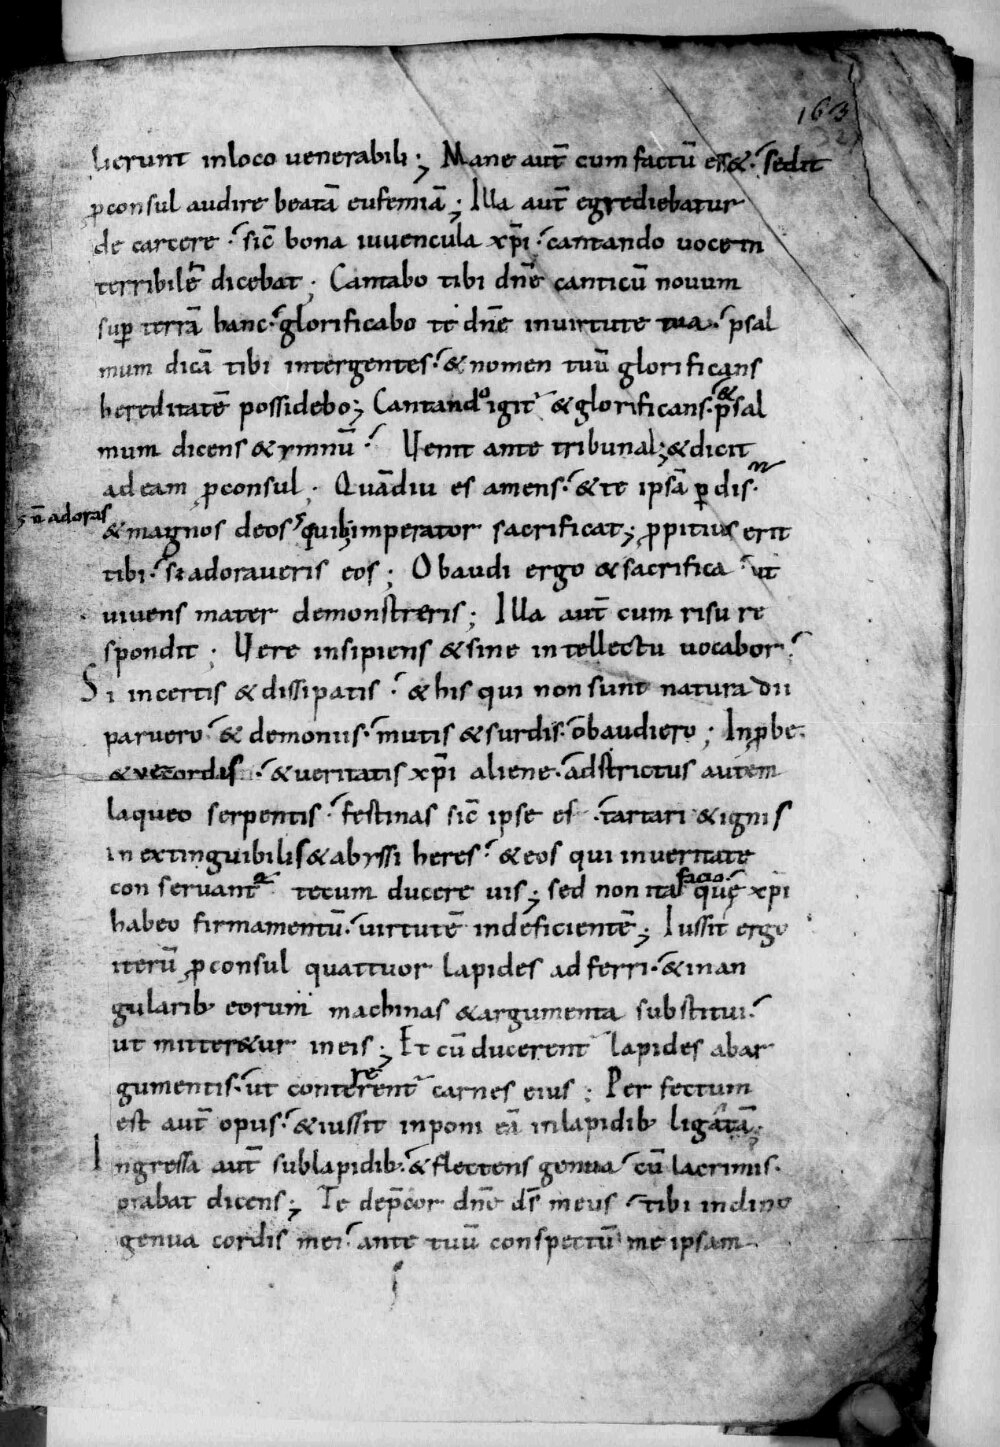 163
lierunt inloco uenerabili; Mane aut̄ cum factū ess&. sedit
ꝓconsul audire beatā eufemiā; Illa aut̄ egrediebatur
de carcere. sic̄ bona iuuencula xp̄i. cantando uocem
terribilē dicebat; Cantabo tibi dn̄e canticū nouum
suꝑ terrā hanc. glorificabo te dn̄e inuirtute tua. psal
mum dicā tibi intergentes. & nomen tuū glorificans
hereditatē possidebo; Cantando igit̄ & glorificans. & psal
mum dicens & ymnū. Uenit ante tribunal; & dicit
ad eam ꝓconsul. Quādiu es amens. & te ipsā ꝑdis.
; n̄ adoras
& magnos deos quib; imperator sacrificat; ꝓpitius erit
tibi. si adoraueris eos; Obaudi ergo & sacrifica ut
uiuens mater demonstreris; Illa aut̄ cum risu re
spondit; Uere insipiens & sine intellectu uocabor.
Si incertis & dissipatis. & his qui non sunt natura dii
paruero. & demoniis. mutis & surdis. obaudiero; Inꝓbe.
& uecordis. & ueritatis xp̄i aliene. adstrictus autem
laqueo serpentis. festinas sic̄ ipse es. tartari & ignis
inextinguibilis & abyssi heres. & eos qui inueritate
conseruant̄ tecum ducere uis; sed non ita facio. quę xp̄i
habeo firmamentū. uirtutē indeficientē; Iussit ergo
iterū ꝓconsul quattuor lapides adferri. & inan
gularib; eorum machinas & argumenta substitui.
ut mitter&ur ineis; Et cū ducerent̄ lapides abar
gumentis. ut contererent̄ carnes eius; Perfectum
est aut̄ opus. & iussit inponi eā inlapidib; ligatā;
Ingressa aut̄ sublapidib;. & flectens genua cū lacrimis.
orabat dicens; Te dep̄cor dn̄e ds̄ meus. tibi inclino
genua cordis mei. ante tuū conspectū me ipsam